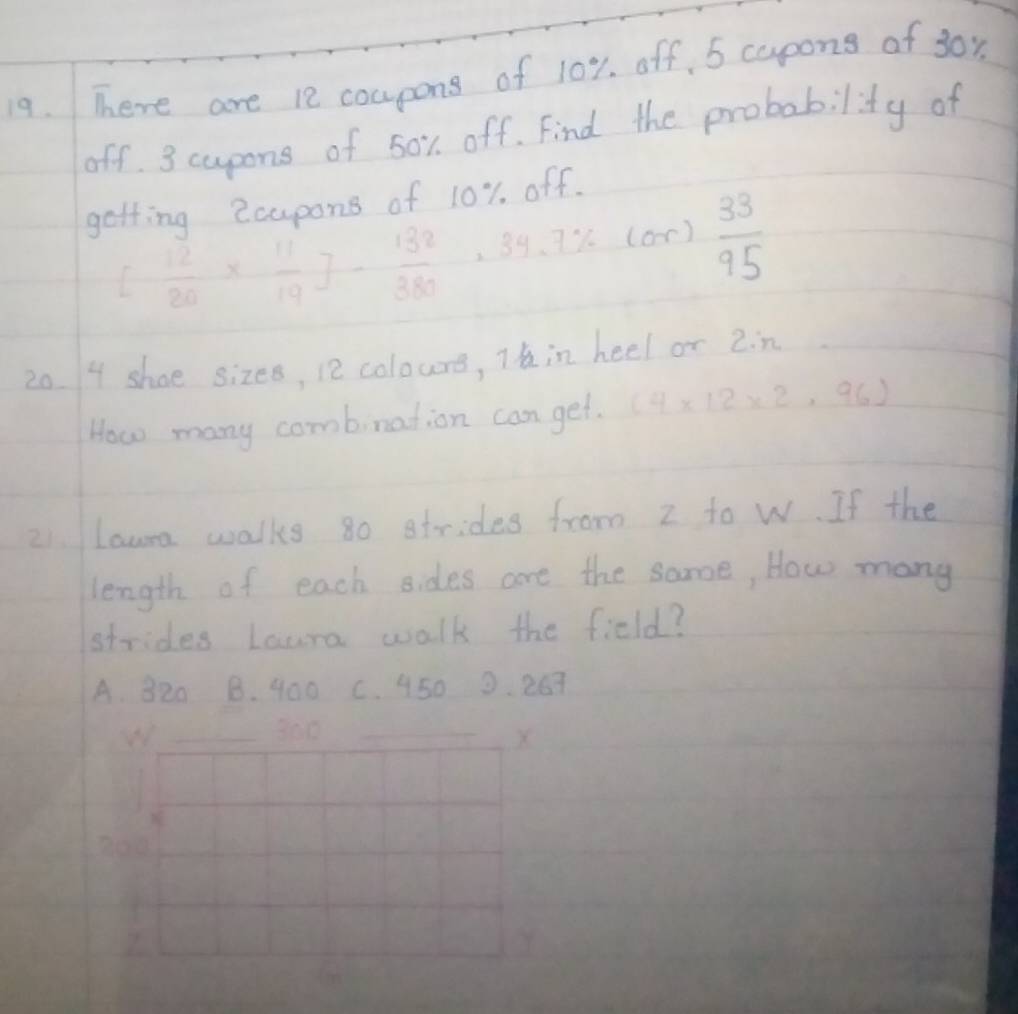 19. There are 12 coupons of 10% off, 5 cupons of 30%
off. 3 cupons of 50% off. Find the probability of
getting 2cupons of 10% off.
[ 12/20 × 11/19 ] - 132/380 , 34.7% (or) 33/95
20. 4 shoe sizes, 12 colours, 1½ in heel or 2 in
How many combination can get. (4 × 12 × 2 , 96)
21. Laura walks 80 strides from Z to W. If the
length of each sides are the same, How many
strides Laura walk the field?
A. 320 B. 400 C. 450 D. 267
W 300 X
200
Z Y